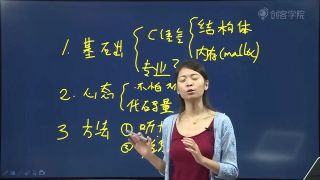 创客学院
1. 基础 { C语言 { 结构体
内存(malloc)
专业?
2. 心态 { 不怕
代码量
3 方法 { ① 听
②